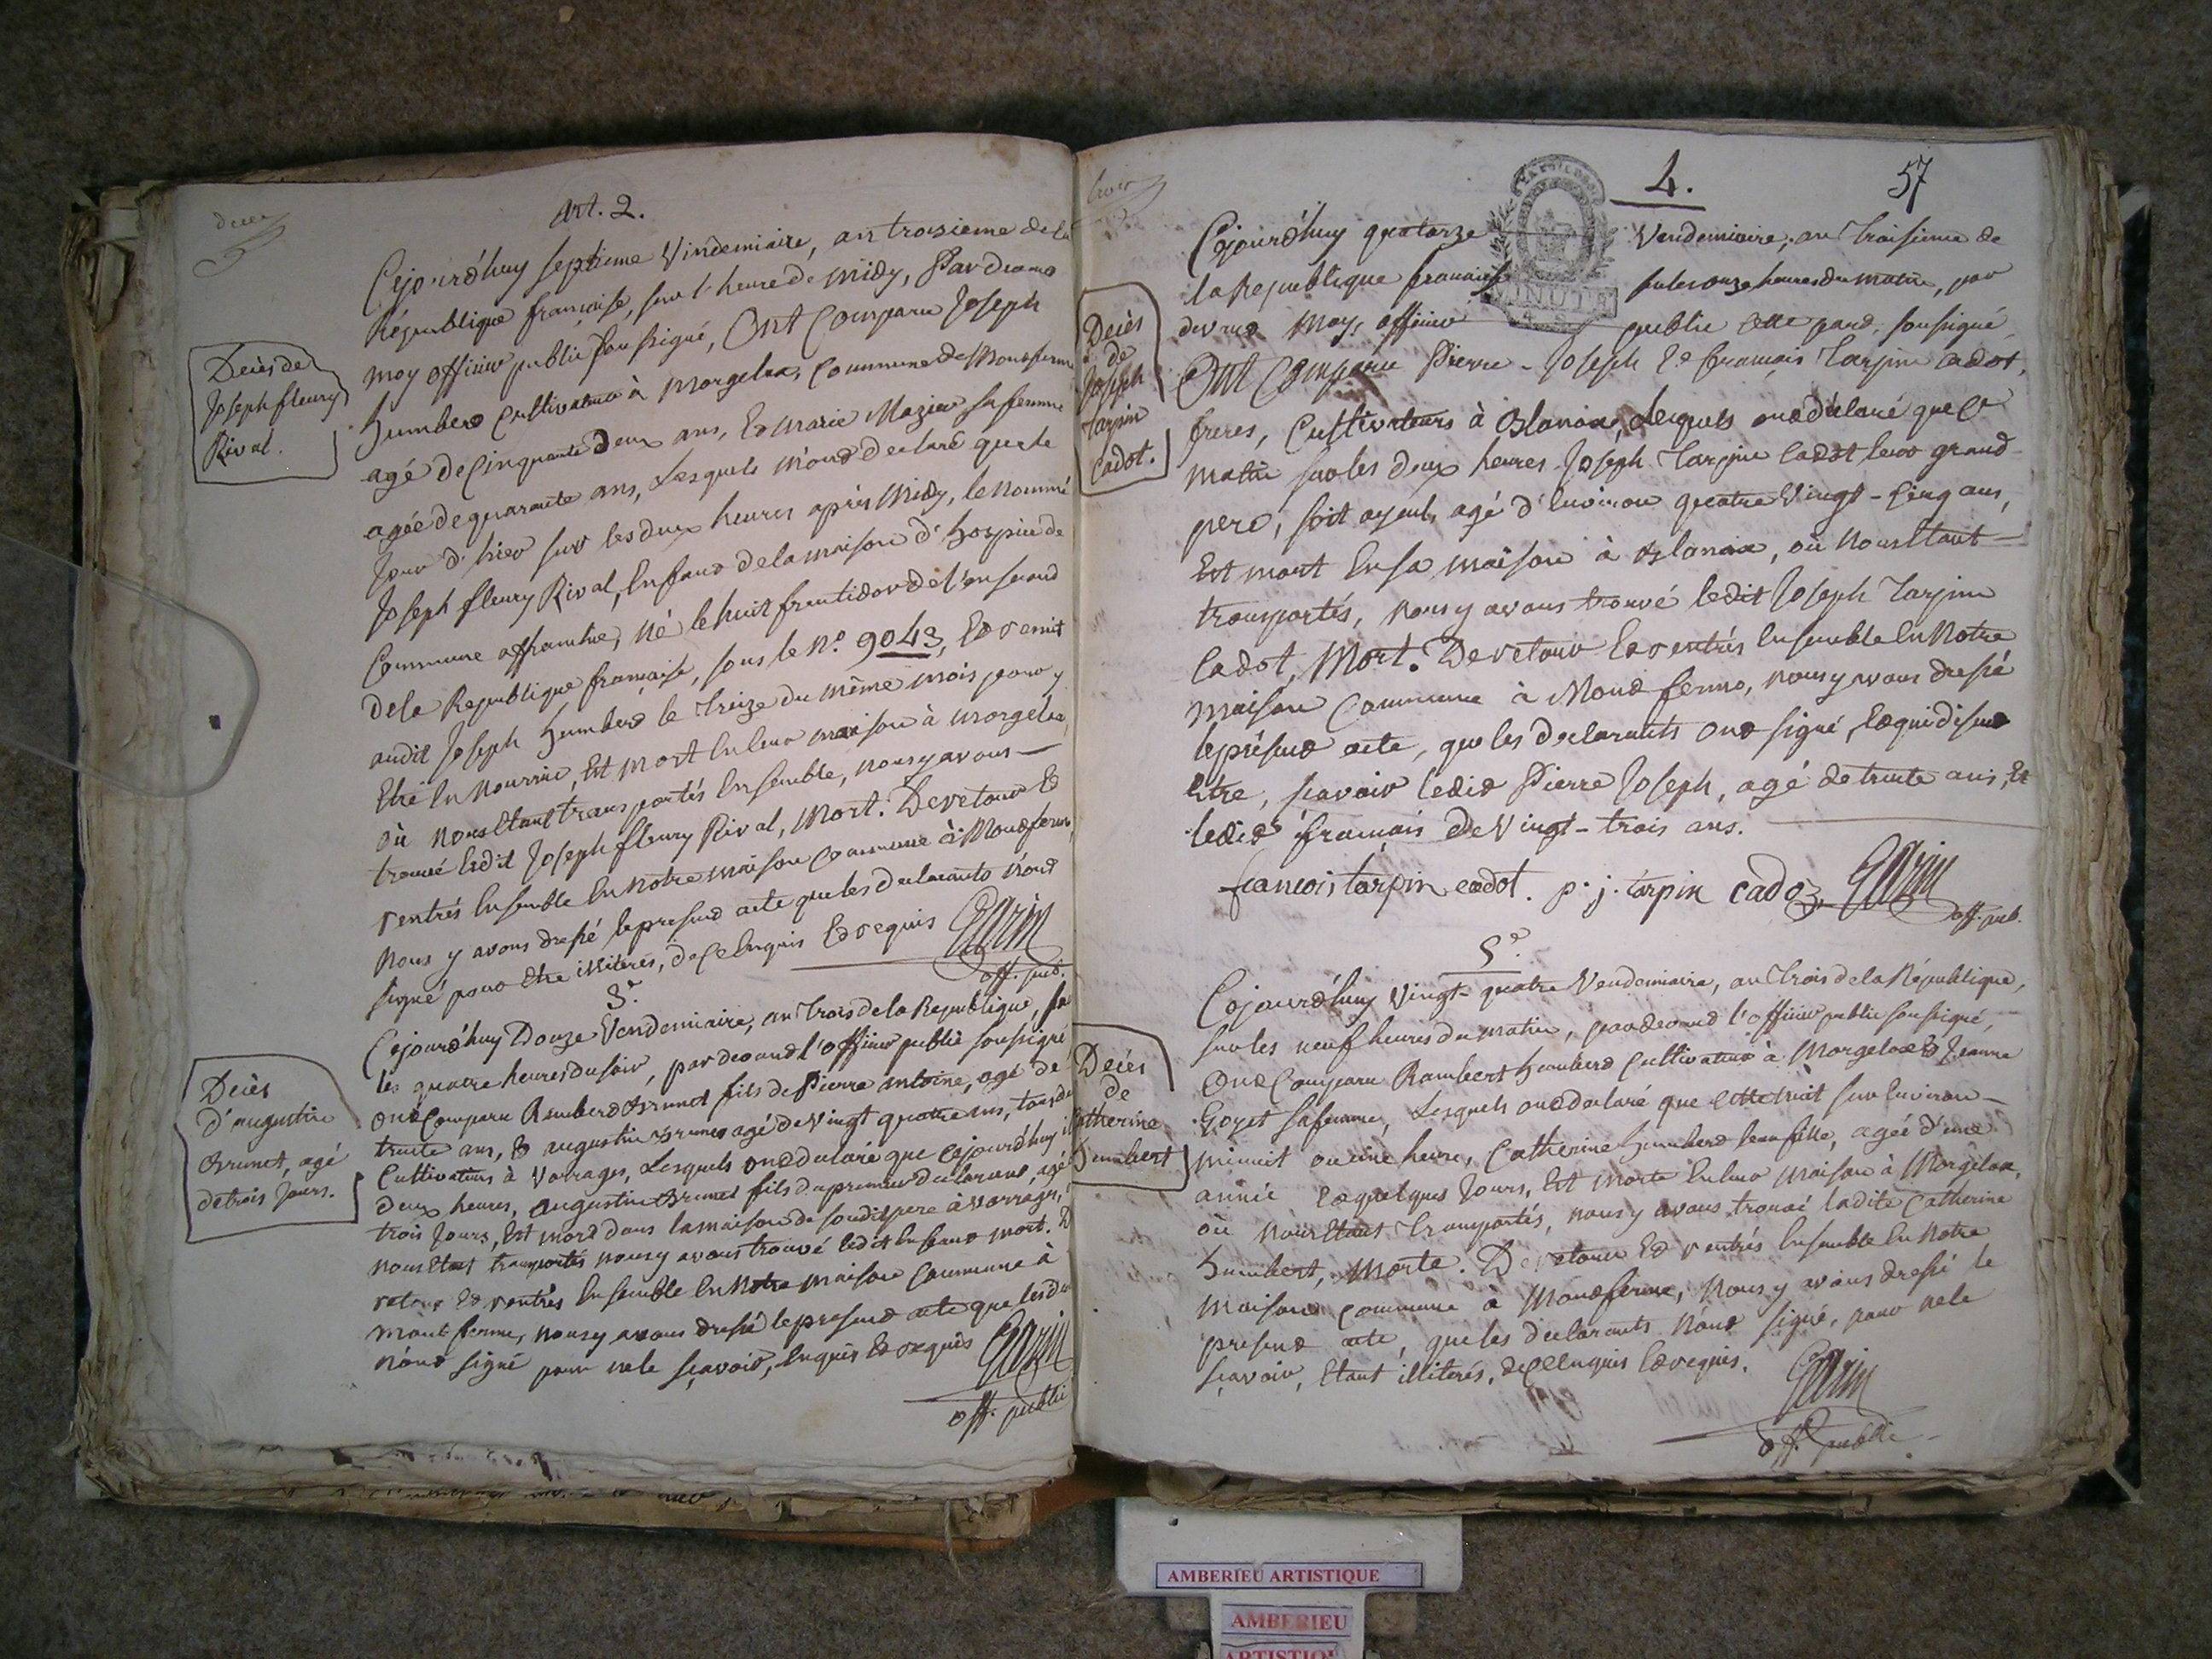 Art. 2.
Cejourd'huy septieme Vindemiaire, an troisieme de la
République française, sur l'heure de midy, Pardevant
moy officier public soussigné, Ont Comparu Joseph
Humbert Cultivateur à Morgelas, Commune de Montferme
agé de Cinquante deux ans, Et Marie Mazier sa femme
agée de quarante ans, Lesquels m'ont declaré que le
Jour d'hier sur les deux heures après Midy, le nommé
Joseph fleury Rival, Enfant de la maison d'hospice de
Commune affranchie, né le huit fructidor de l'an second
de la Republique française, sous le N.º 9043, Et remit
audit Joseph Humbert le treize du même mois pour y
Etre En Nourrice, Est mort En leur maison à morgelas,
où nous Etant transportés Ensemble, nous y avons
trouvé ledit Joseph fleury Rival, Mort. De retour Et
rentrés Ensemble En Notre maison Commune à Montferme,
nous y avons dressé le present acte que les declarants n'ont
signé pour Etre illiterés, de Ce Enquis Et requis
off. pub.
Decès de
Joseph fleury
Rival.
3.e
Cejourd'huy Douze Vendemiaire, an trois de la Republique, sur
les quatre heures du soir, pardevant l'officier public soussigné
ont Comparu Rambert Brunet fils de Pierre antoine, agé de
trente ans, & augustin Brunet agé de Vingt quatre ans, tous deux
Cultivateurs à Varrages, Lesquels ont declaré que Cejourd'huy
deux heures, augustin Brunet fils du premier declarant, agé
trois Jours, Est mort dans la maison de soudit pere à Varrages,
nous Etant transportés nous y avons trouvé ledit Enfant mort.
retour Et rentrés Ensemble En Notre maison Commune à
montferme, nous y avons dressé le present acte que les
n'ont signé pour ne le sçavoir, Enquis Et requis
off. public
Decès
d'augustin
Brunet, agé
de trois Jours.
4.
57
Cejourd'huy quatorze Vendemiaire, an troisieme de
la Republique française sur les onze heures du matin, par
devant Moy, officier public
Ont Comparu Pierre-Joseph Et français Tarpin Cadot,
freres, Cultivateurs à Blanas, Lesquels ont déclaré que Ce
matin sur les deux heures Joseph Tarpin Cadot leur grand-
pere, soit ayeul, agé d'environ quatre Vingt-Cinq ans,
Est mort En sa maison à Blanas, où nous Etant
transportés, nous y avons trouvé ledit Joseph Tarpin
Cadot, Mort. De retour Et rentrés Ensemble En Notre
maison Commune à Montferme, nous y avons dressé
le présent acte, que les declarants ont signé, Et qui disent
Etre, sçavoir ledit Pierre Joseph, agé de trente ans, Et
ledit français de Vingt-trois ans.
francois tarpin cadot. p. j. tarpin cadoz
off. pub.
MINUTE
Decès
de
Joseph
Tarpin
Cadot.
5.e
Cejourd'huy Vingt-quatre Vendemiaire, an trois de la République,
sur les neuf heures du matin, pardevant l'officier public soussigné,
Ont Comparu Rambert Humbert Cultivateur à Morgelas & Jeanne
Goyet sa femme, Lesquels ont declaré que Cette nuit sur Environ
minuit ou une heure, Catherine Humbert leur fille, agée d'une
année Et quelques Jours, Est morte En leur maison à Morgelas,
où nous Etant transportés, nous y avons trouvé ladite Catherine
Humbert, Morte. De retour Et rentrés Ensemble En Notre
maison Commune à Montferme, nous y avons dressé le
present acte, que les declarants n'ont signé, pour ne le
sçavoir, Etant illiterés, de Ce Enquis Et requis.
off. public
Decès
de
Catherine
Humbert
AMBERIEU ARTISTIQUE
AMBERIEU
ARTISTIQUE